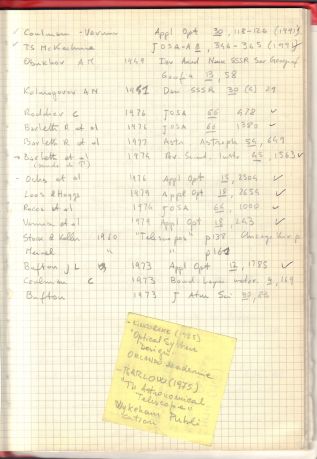 ✓ Coulman - Vernin Appl Opt 30, 118-126 (1991)
✓ TS McKechnie JOSA-A 8, 346-365 (1991)
Obukhov AM 1949 Izv Akad Nauk SSSR Ser Geograf
Geofiz 13, 58
Kolmogorov AN 1941 Dan SSSR 30 (4)
Roddier C 1976 JOSA 66 478 ✓
Barletti R et al 1976 JOSA 66 1380 ✓
Barletti R et al 1977 Astr. Astroph 55, 649
Barletti et al 1974 Rev. Scient. Instr. 45, 1563 ✓
Ochs et al 1976 Appl Opt 15, 2504 ✓
Loos & Hogge 1979 Appl Opt 18, 2654 ✓
Rocca et al 1974 JOSA 64 1000 ✓
Vernin et al 1979 Appl Opt 18 243 ✓
1960 "Telescopes" p138
Meinel " " "
Bufton J L 1973 Appl Opt 12, 1785 ✓
Coulman C 1973 Bound. Layer meteor. 4, 169
Bufton 1973 J Atm Sci 30, 83
- KINGSLAKE (1983)
"Optical System
Design"
ORLANDO Academic
(1975)
"The Astronomical
Telescope"
Wykeham Publi
cation